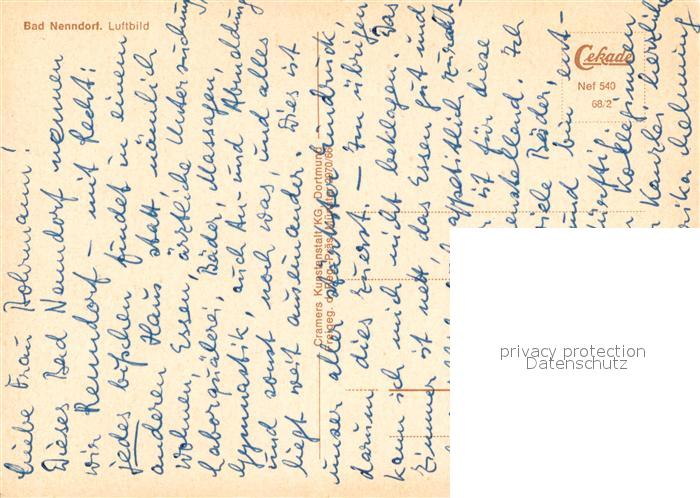 Bad Nenndorf. Luftbild
Cekade
Nef 540
68/2
Cramers Kunstanstalt KG, Dortmund
Freigeg. d. Reg.-Präs. Münster 2970/66
Liebe Frau Bohrmann!
Dieses Bad Nenndorf nennen
wir Renndorf – mit Recht:
jedes bißchen findet in einem
anderen Haus statt nämlich
Wohnen, Essen, ärztliche Untersuchung,
Laborquälerei, Bäder, Massagen,
Gymnastik, auch An- und Abmeldung
und sonst noch was, und alles
liegt weit auseinander. Dies ist
unser aller Eindruck,
darum dies zuerst. – Im übrigen
kann ich mich nicht beklagen. Das
Zimmer ist nett, das Essen gut und
appetitlich
ist für diese
Ich
viele Bäder,
und bin
Kolleginnen
Kanzlei herzliche
privacy protection
Datenschutz